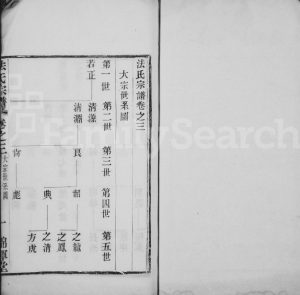 法氏宗譜卷之三
大宗世系圖
第一世 第二世 第三世 第四世 第五世
若正 清濂
清淵 良 韶 之鏞
之鳳
典 之清
尚彪 方虎
法氏宗譜 卷之三 大宗世系圖 一 錦軍堂
FamilySearch